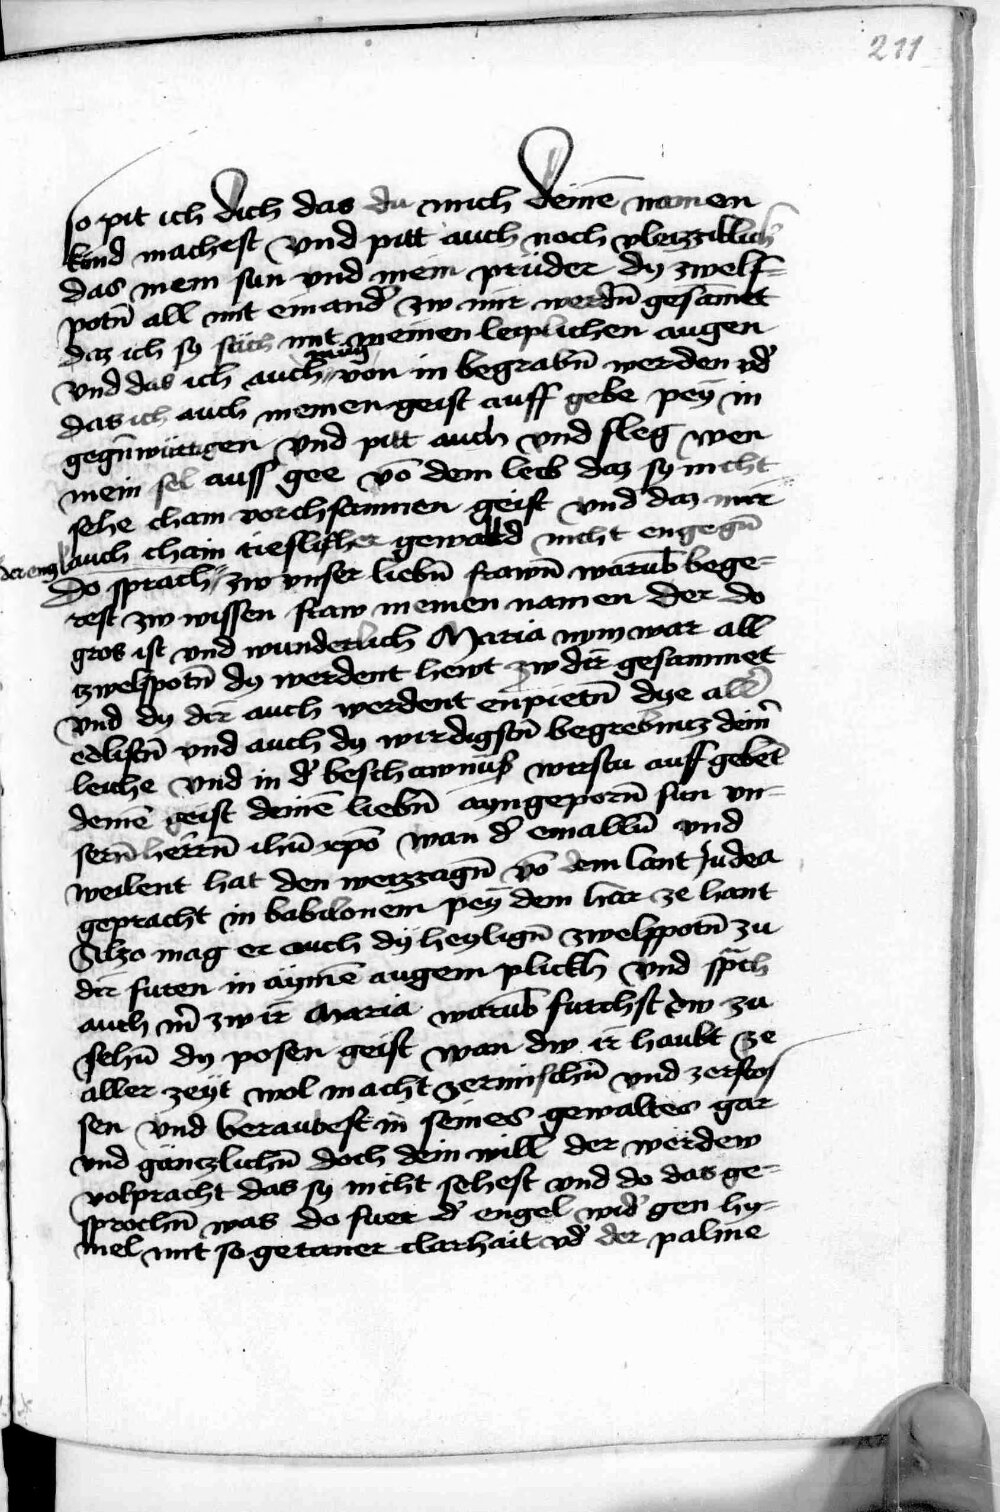 211
so pit ich dich das du mich deinē namen
kund machest vnd pitt auch noch vleizziklich̄
das mein sun vnd mein prüder dy zwelf-
potn̄ all mit einand̄ zw mir werdn̄ gesāmet
daz ich sy sich mit meinen leiplichen augen
vnd das ich auch mug von in begrabn̄ werden vd̄
das ich auch meinen geist auff gebe pey in
gegn̄wärtigen vnd pitt auch vnd fleg wen
mein sel auss gee vō dem leib daz sy nicht
sehe chain vorchsamen geist vnd daz mir
auch chain tieflicher gewald nicht engegn̄
Do sprach der engl zw vnser liebn̄ frawn̄ warūb bege-
rest zw wissen fraw meinen namen der do
gros ist vnd wunderlich Maria nym war all
zwelfpotn̄ dy werdent hewt zw dir gesammet
vnd dy dir auch werdent enpietn̄ dye allr̄
edlistn̄ vnd auch dy wirdigstn̄ begrebnuz deinr̄
leiche vnd in d̄ beschawnüß wirstu auff gebn̄
deinē geist deinē liebn̄ ayngeporn̄ sun vn-
sern̄ herrn̄ ihū xpō wan d̄ emalln̄ vnd
weilent hat den weizzagn̄ vō dem lant Judea
gepracht in babilonem pey dem har ze hant
Also mag er auch dy heylign̄ zwelfpotn̄ zu
dir furen in aymē augem plickh vnd sp̄ch
auch m̄ zw ir Maria warūb furchst dw zu
sehn̄ dy posen geist wan dw ir haubt ze
aller zeyt wol macht zermischn̄ vnd zerstos
sen vnd beraubest in seines gewaltes gar
vnd gänczlichn̄ doch dein will der werdew
volpracht das sy nicht sehest vnd do das ge-
sprochn̄ was do fuer d̄ engel wid̄ gen hy-
mel mit so getaner clarhait vd̄ der palme